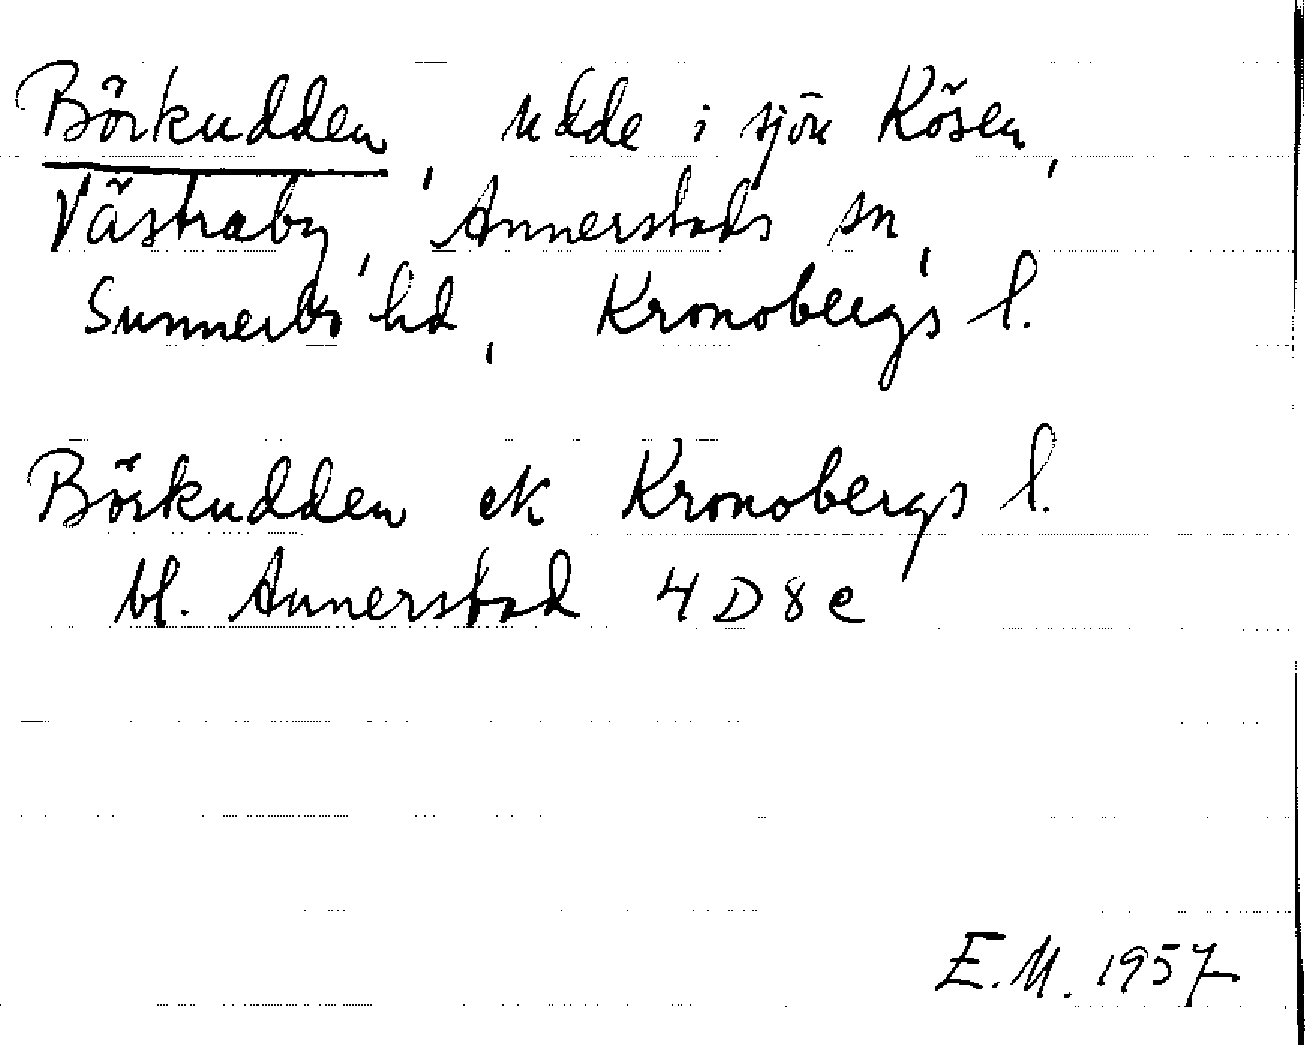 Börkudden, udde i sjön Kösen,
Västraby, Annerstads sn,
Sunnerbo hd, Kronobergs l.
Börkudden ek Kronobergs l.
bl. Annerstad 4 D 8 e
E.M. 1957